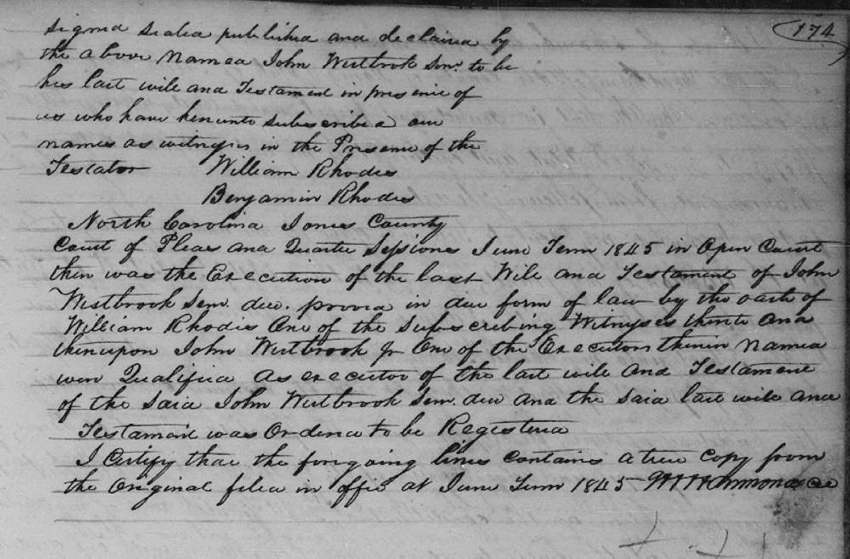 174
Signed Sealed published and declared by
the above Named John Westbrook Senr. to be
his last wile and Testament in presence of
us who have hereunto subscribed our
names as witnesses in the Presence of the
Testator William Rhodes
Benjamin Rhodes
North Carolina Jones County
Court of Pleas and Quarter Sessions June Term 1845 in Open Court
then was the Execution of the last Wile and Testament of John
Westbrook Senr. dec. proved in due form of law by the oath of
William Rhodes One of the Subscribing Witnesses thereto And
thereupon John Westbrook Jr One of the Executors therein Named
was Qualified as executor of the last wile and Testament
of the Said John Westbrook Senr. dec and the Said last wile and
Testament was Ordered to be Registered
I Certify that the foregoing lines contains a true Copy from
the Original filed in offic at June Term 1845